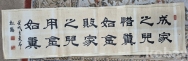 成家
之兒
惜糞
如金
敗家
之兒
用金
如糞